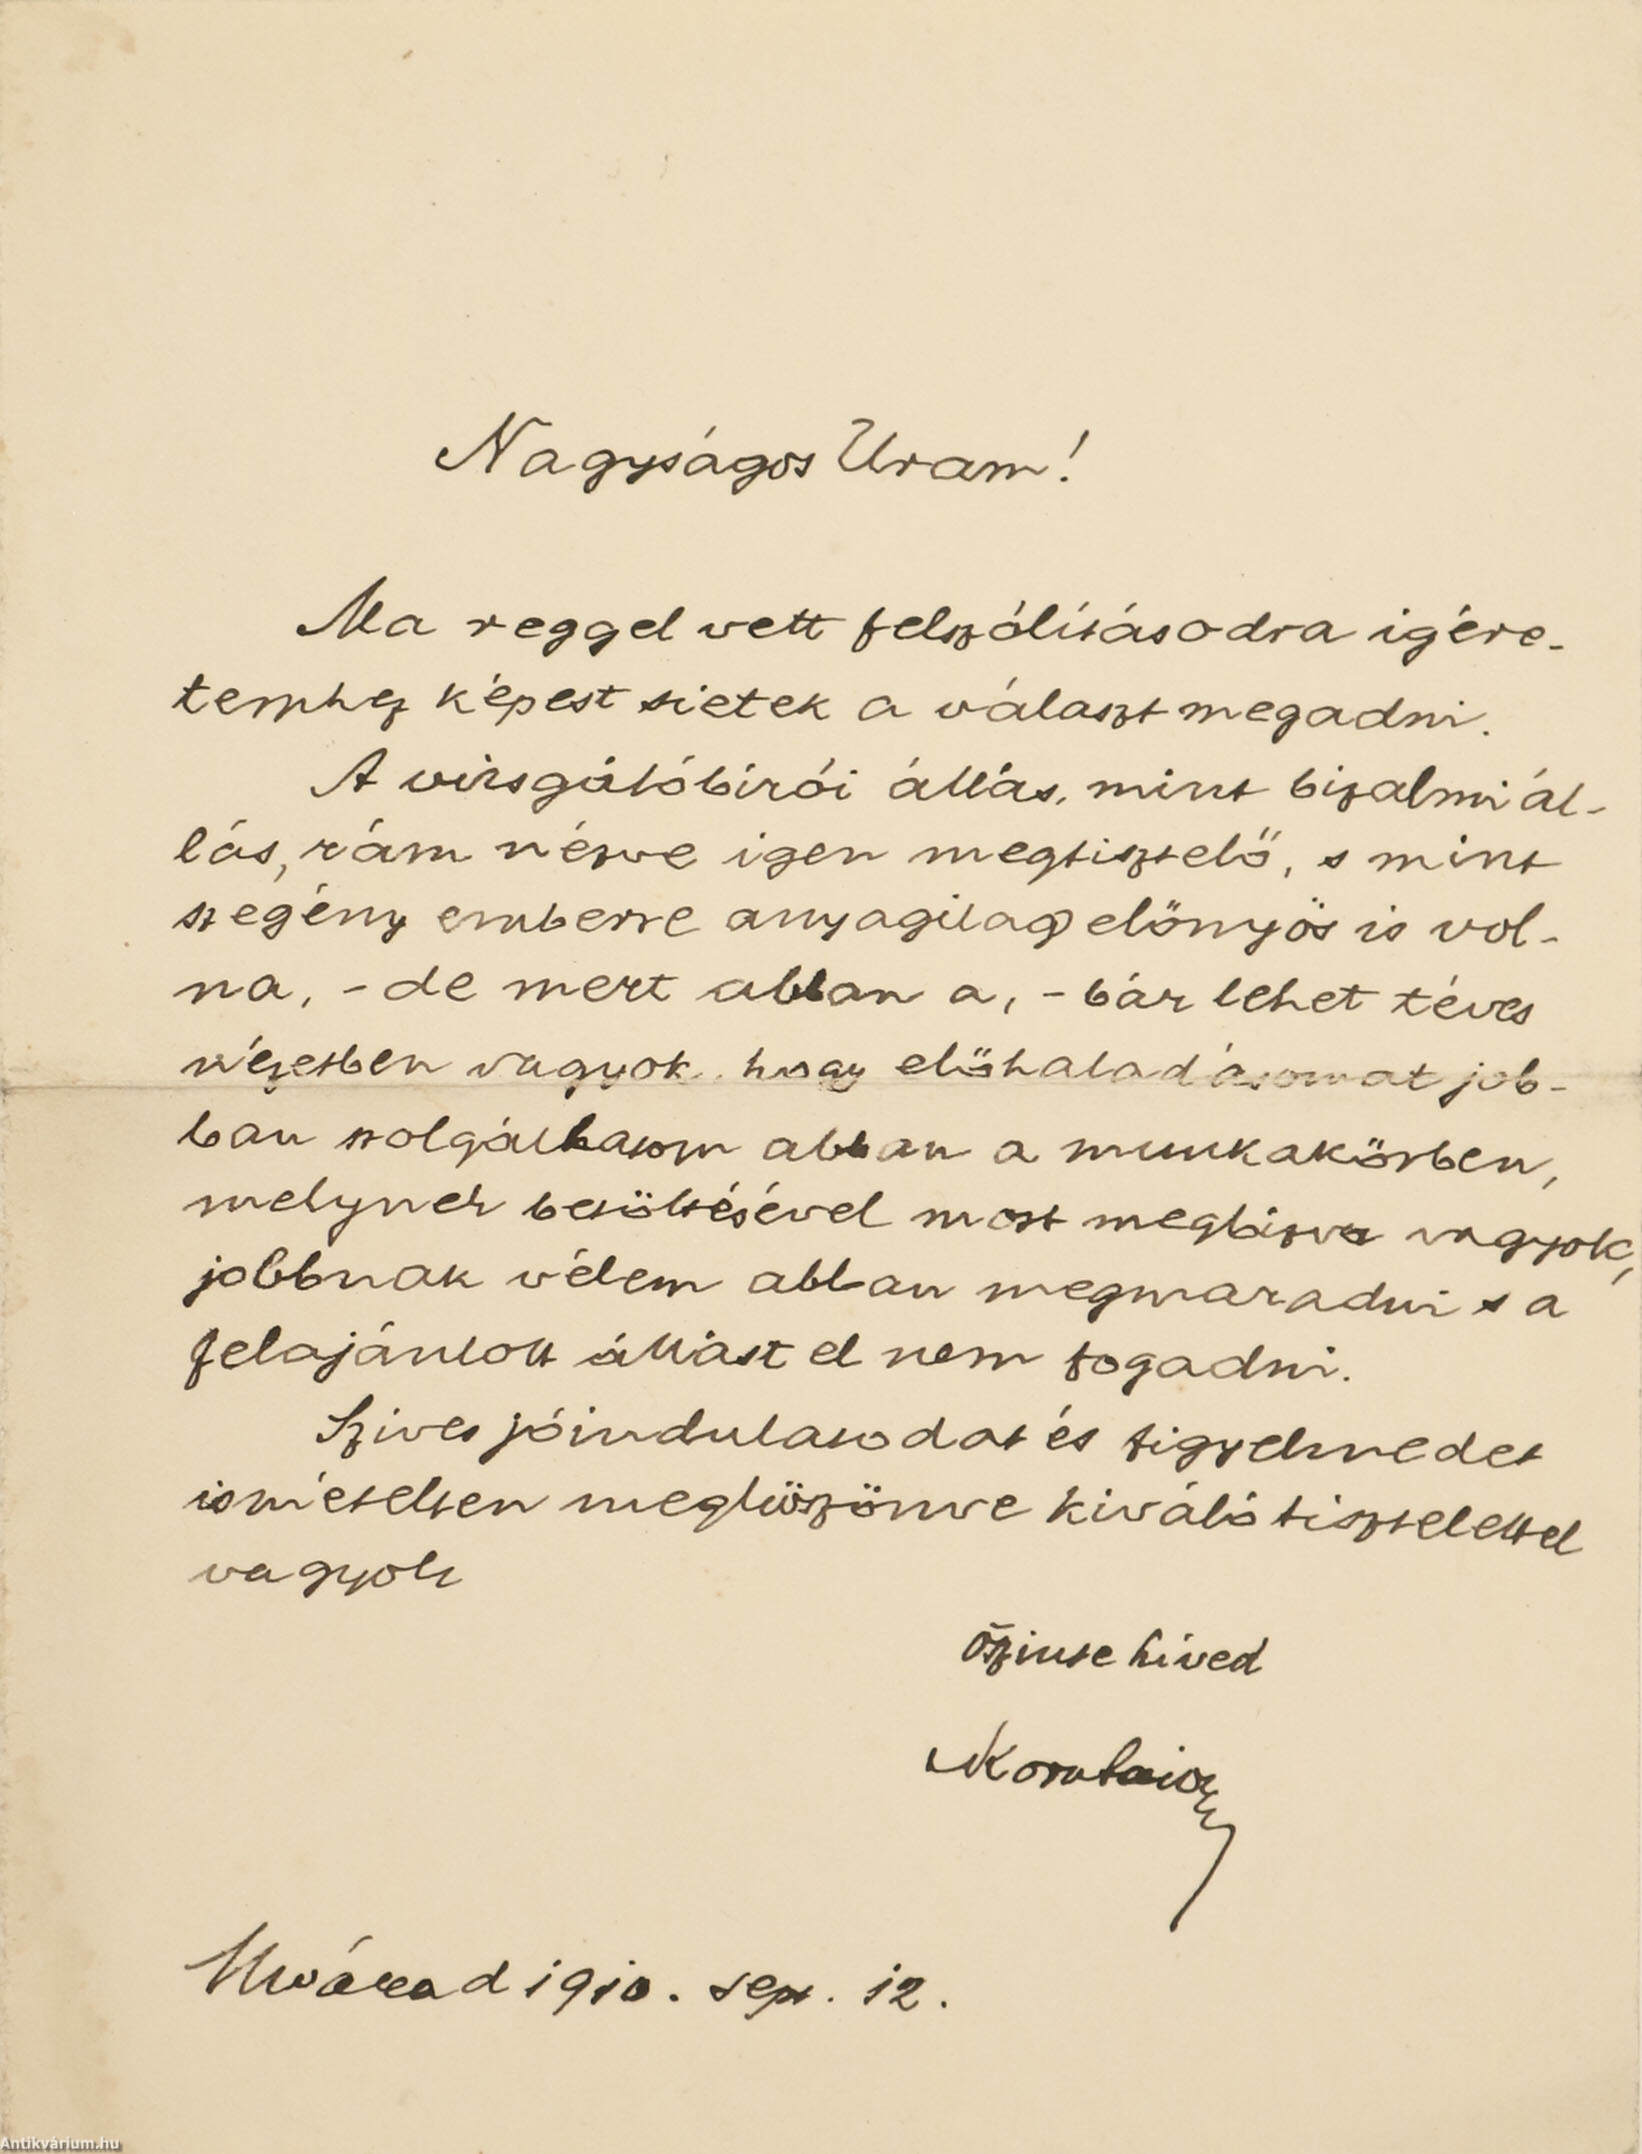 Nagyságos Uram!
Ma reggel vett felszólításodra igére-
temhez képest sietek a választ megadni.
A vizsgálóbirói állás, mint bizalmi ál-
lás, rám nézve igen megtisztelő, s mint
szegény emberre anyagilag előnyös is vol-
na, - de mert abban a, - bár lehet téves
nézetben vagyok, hogy előhaladásomat job-
ban szolgálhatom abban a munkakörben,
melynek betöltésével most megbizva vagyok,
jobbnak vélem abban megmaradni s a
felajánlott állást el nem fogadni.
Szives jóindulatodat és figyelmedet
ismételten megköszönve kiváló tisztelettel
vagyok
őszinte hived
Nvárad 1910. sept. 12.
Antikvárium.hu